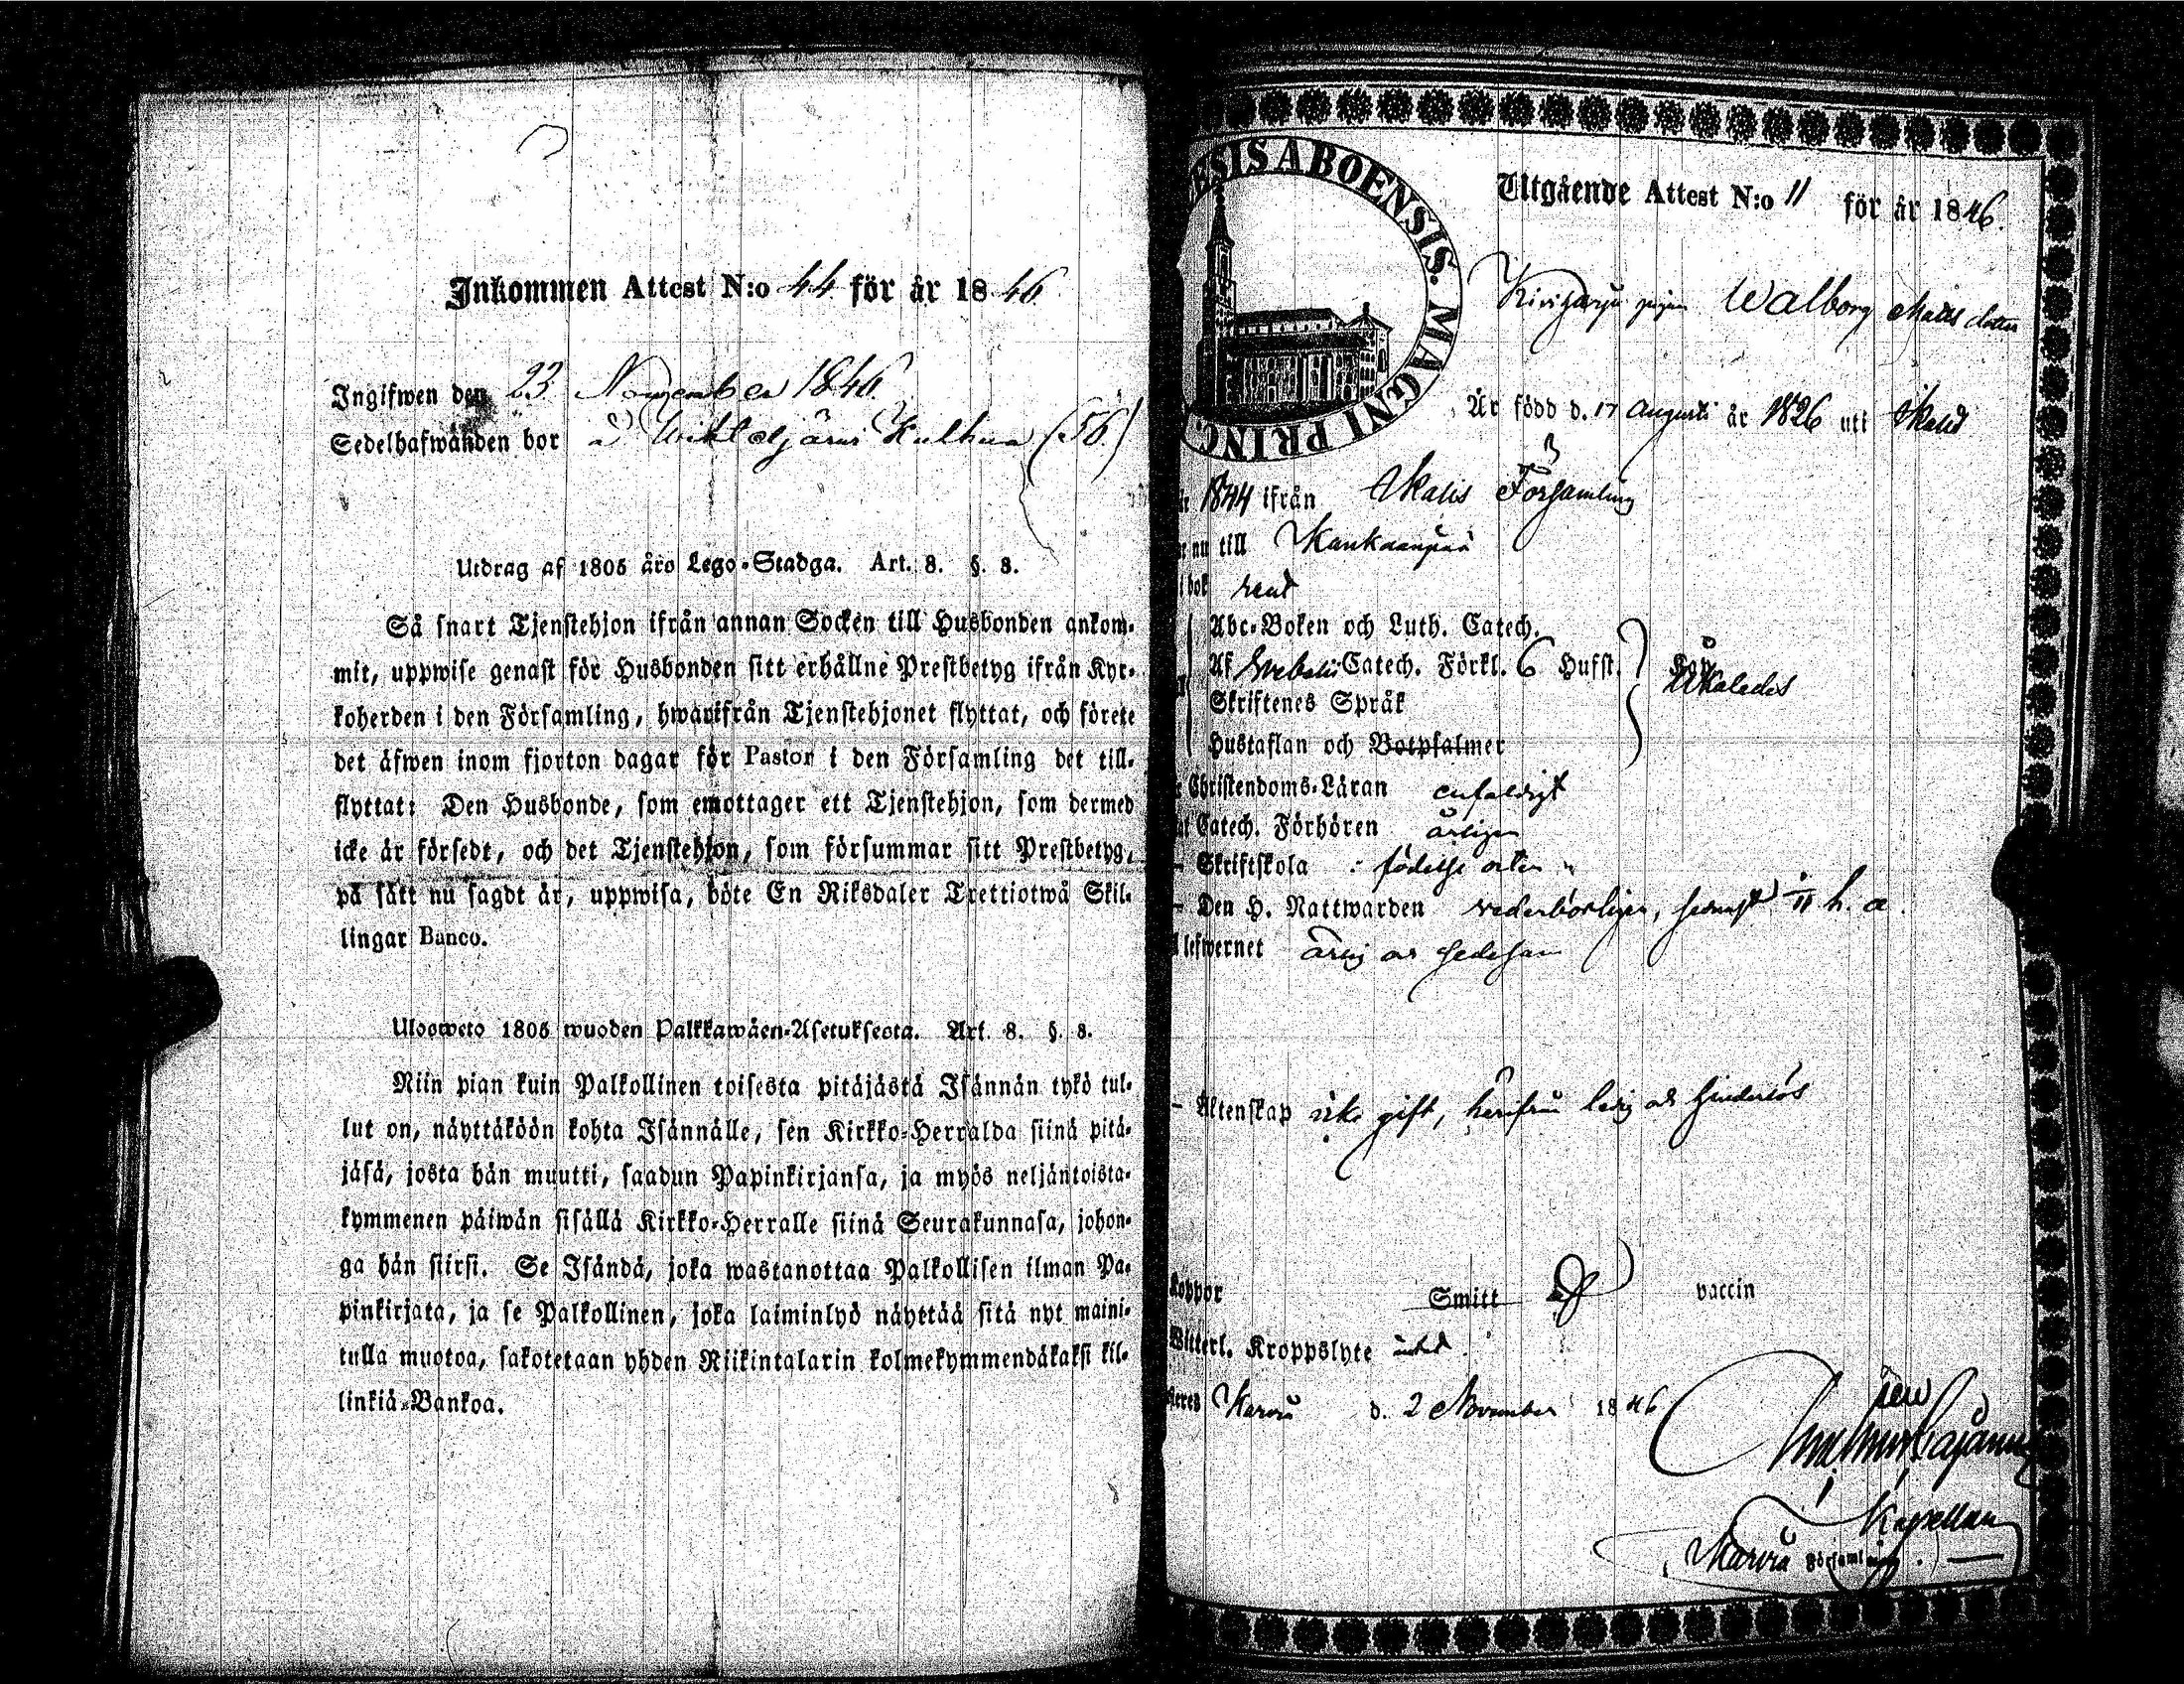 Inkommen Attest N:o 44 för år 1846
Ingifwen den 23 November 1846.
Sedelhafwanden bor å Wihteljärwi Kulhua (56)
Utdrag af 1805 åro Lego-Stadga. Art. 8. §. 8.
Så snart Tjenstehjon ifrån annan Socken till Husbonden ankom-
mit, uppwise genast för Husbonden sitt erhållne Prestbetyg ifrån Kyr-
koherden i den Församling, hwarifrån Tjenstehjonet flyttat, och förete
det äfwen inom fjorton dagar för Pastor i den Församling det till-
flyttat: Den Husbonde, som emottager ett Tjenstehjon, som dermed
icke är försedt, och det Tjenstehjon, som försummar sitt Prestbetyg,
på sätt nu sagdt är, uppwisa, böte En Riksdaler Trettiotwå Skil-
lingar Banco.
Ulosweto 1805 wuoden Palkkawäen-Asetuksesta. Art. 8. §. 8.
Niin pian kuin Palkollinen toisesta pitäjästä Isännän tykö tul-
lut on, näyttäköön kohta Isännälle, sen Kirkko-Herralda siinä pitä-
jäsä, josta hän muutti, saadun Papinkirjansa, ja myös neljäntoista-
kymmenen päiwän sisällä Kirkko-Herralle siinä Seurakunnasa, johon-
ga hän siirsi. Se Isändä, joka wastanottaa Palkollisen ilman Pa-
pinkirjata, ja se Palkollinen, joka laiminlyö näyttää sitä nyt maini-
tulla muotoa, sakotetaan yhden Riikintalarin kolmekymmendäkaksi kil-
linkiä-Bankoa.
ESIS ABOENSIS. MAGNI PRINC
Utgående Attest N:o 11 för år 1846.
pigan Walborg Matts dotter
Är född d. 17 Augusti år 1826 uti Ikalis
år 1844 ifrån Ikalis Församling
nu till Kankaanpää
i bok rent
Abc-Boken och Luth. Catech.
Af Svebelii Catech. Förkl. 6 Hufst.
Skriftenes Språk
Hustaflan och Botpsalmer
Christendoms-Läran enfaldigt
Catech. Förhören årligen
Skriftskola i födelse orten
Den H. Nattwarden vederbörligen, senast h. a.
lefwernet ärlig och sedesam
Äktenskap icke gift, härifrån ledig och hinderlös
koppor Smitt vaccin
Witterl. Kroppslyte intet.
Karvia d. 2 November 1846
Kapellan
Karvia Församling.